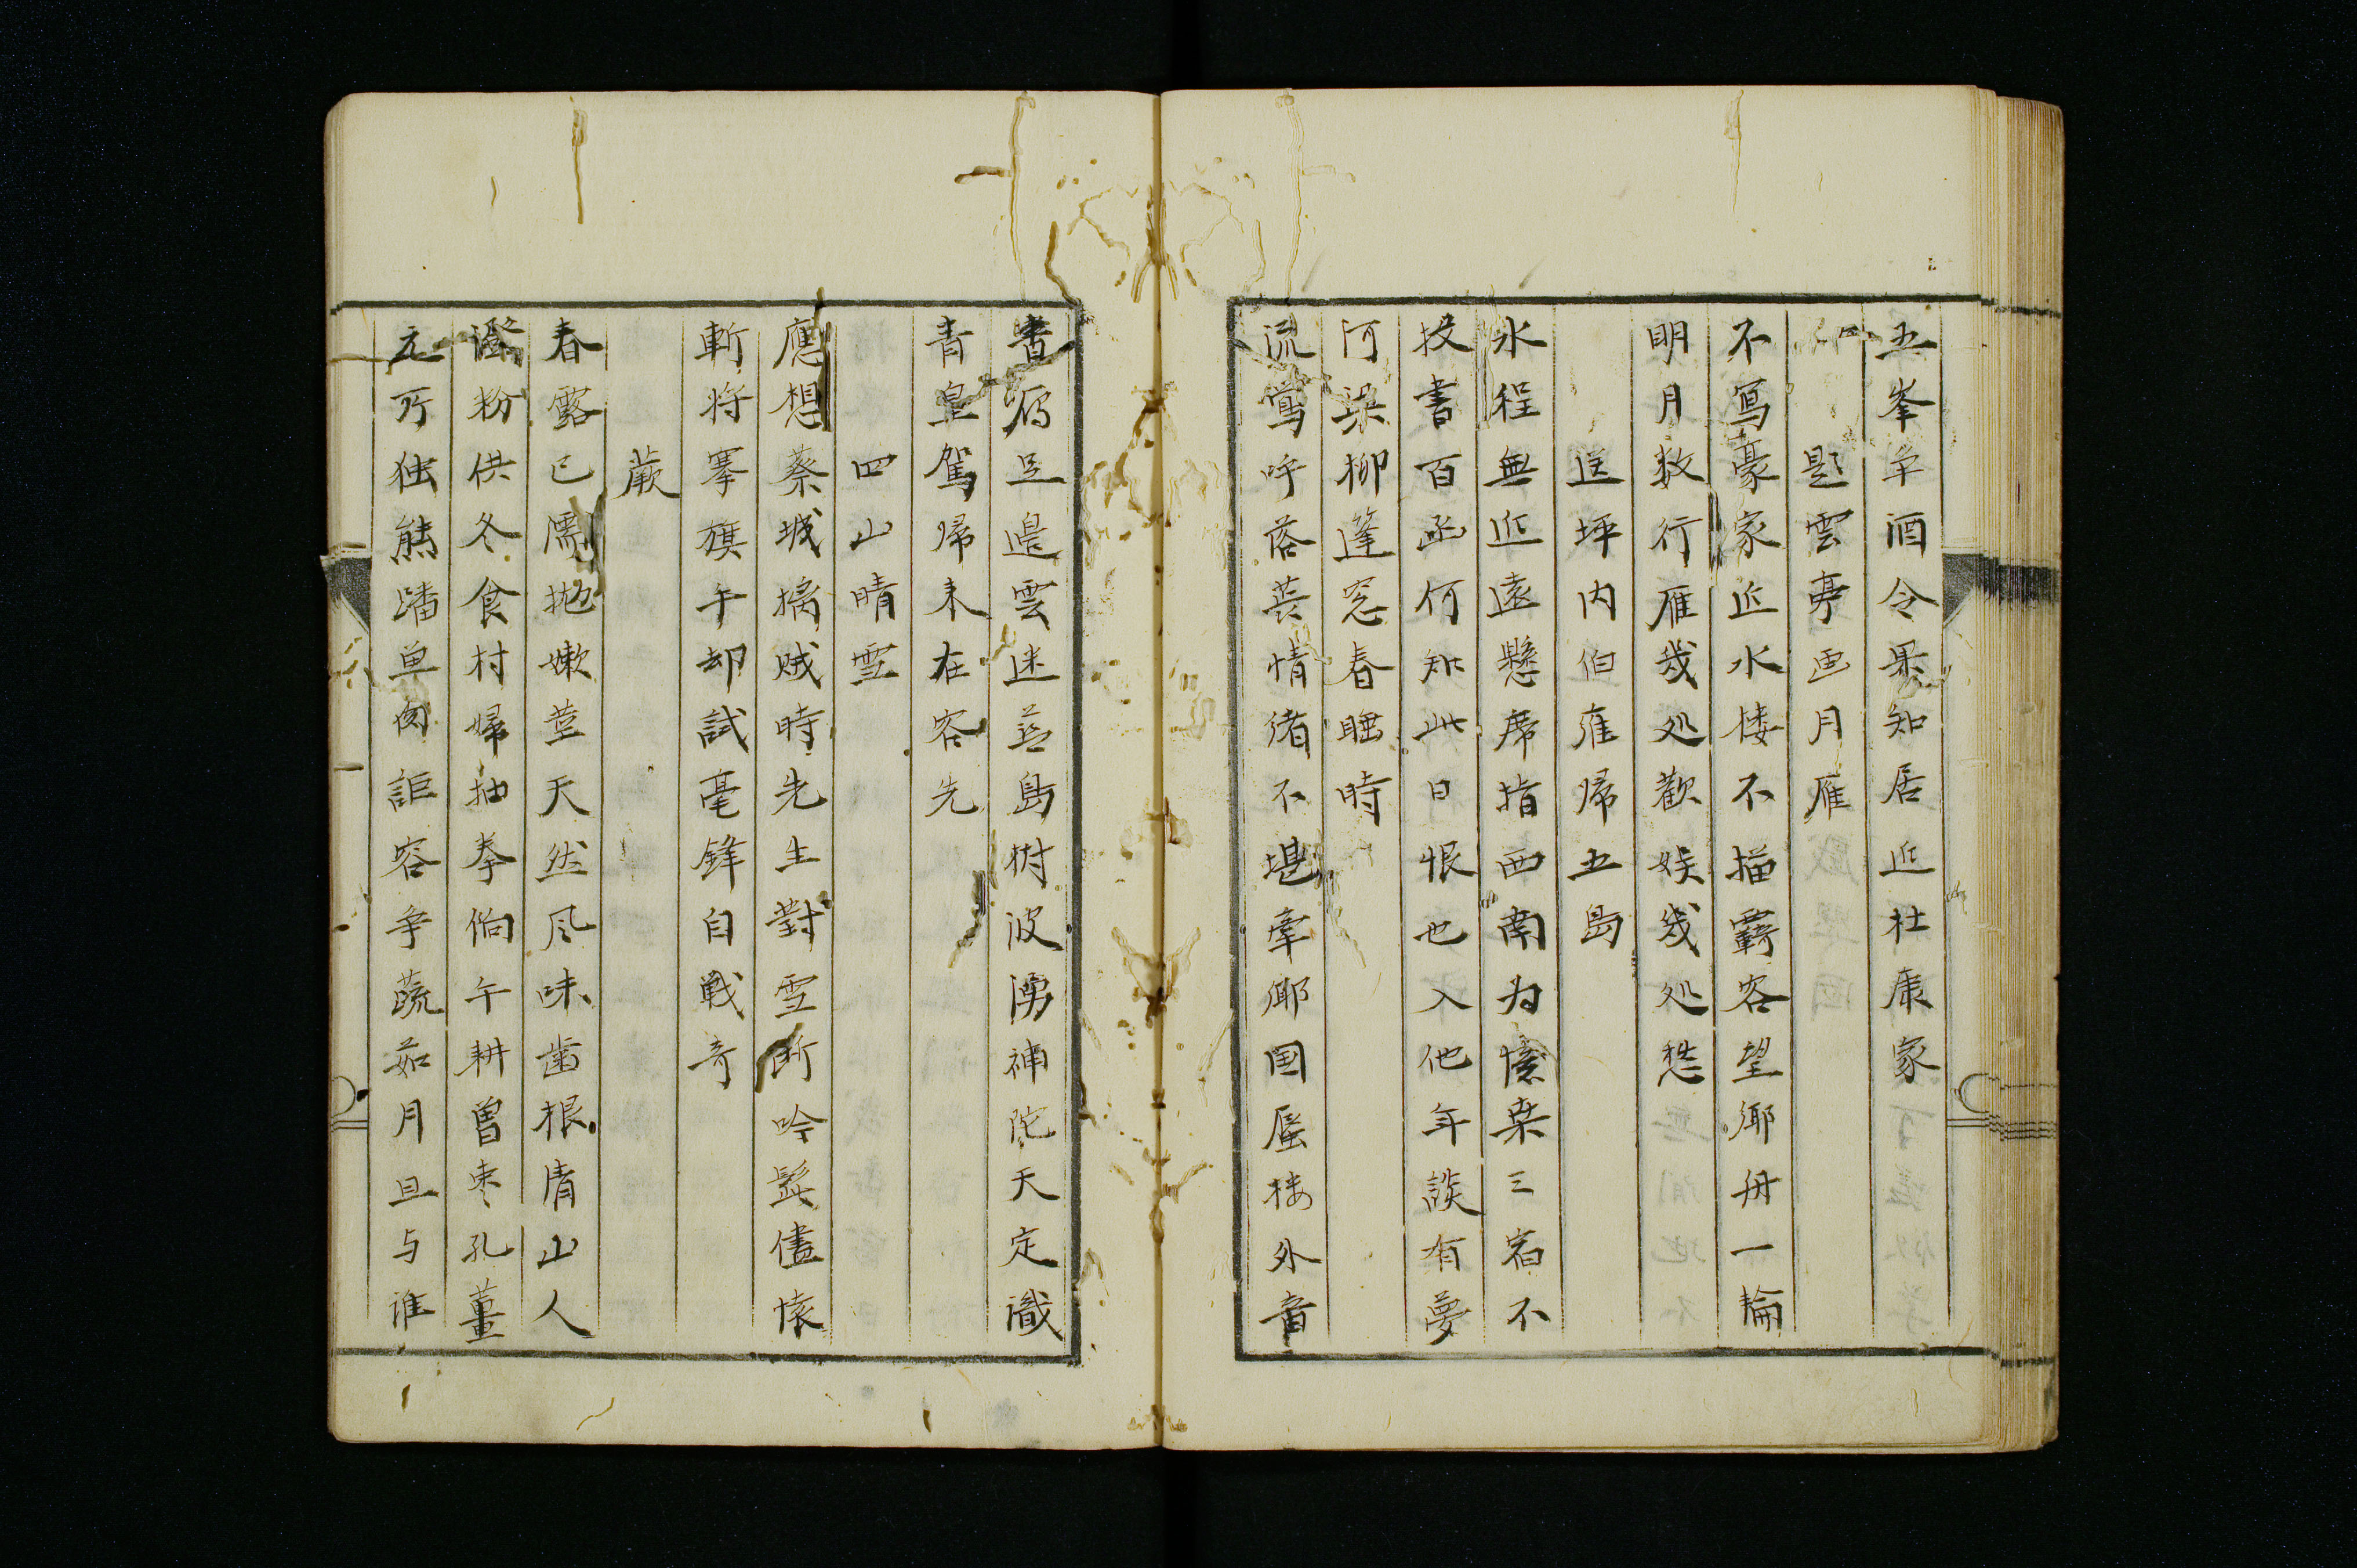 五峯争酒令果知居近杜康家
題雲亭画月雁
不寫豪家近水楼不描羇客望郷舟一輪
明月数行雁幾処歓娯幾処愁
送坪内伯雍帰五島
水程無近遠懸席指西南为懐桒三宿不
投書百函何知此日恨也入他年談有夢
河梁柳篷窓春睡時
流鶯呼落莫情緒不堪牽郷国蜃楼外音
書雁足邊雲迷五島樹波湧神陀天定識
青皇駕帰来在客先
四山晴雪
應想蔡城擒贼時先生對雪断吟髭儘懐
斬将搴旗手却試毫鋒自戦奇
蕨
春露已濡抛嫩莖天然风味歯根清山人
澄粉供冬食村婦抽拳餉午耕曽枣孔薑
元所独熊蹯单肉詎容争蔬茹月旦与谁